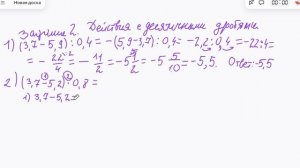 Новая доска
Задание 2. Действия с десятичными дробями.
1) (3,7-5,9):0,4= -(5,9-3,7):0,4= -2,2:0,4= -22:4=
= - 22/4 = - 11/2 = -5 1/2 = -5 5/10 = -5,5. Ответ: -5,5
2) (3,7-5,2):0,8=
1) 3,7-5,2=